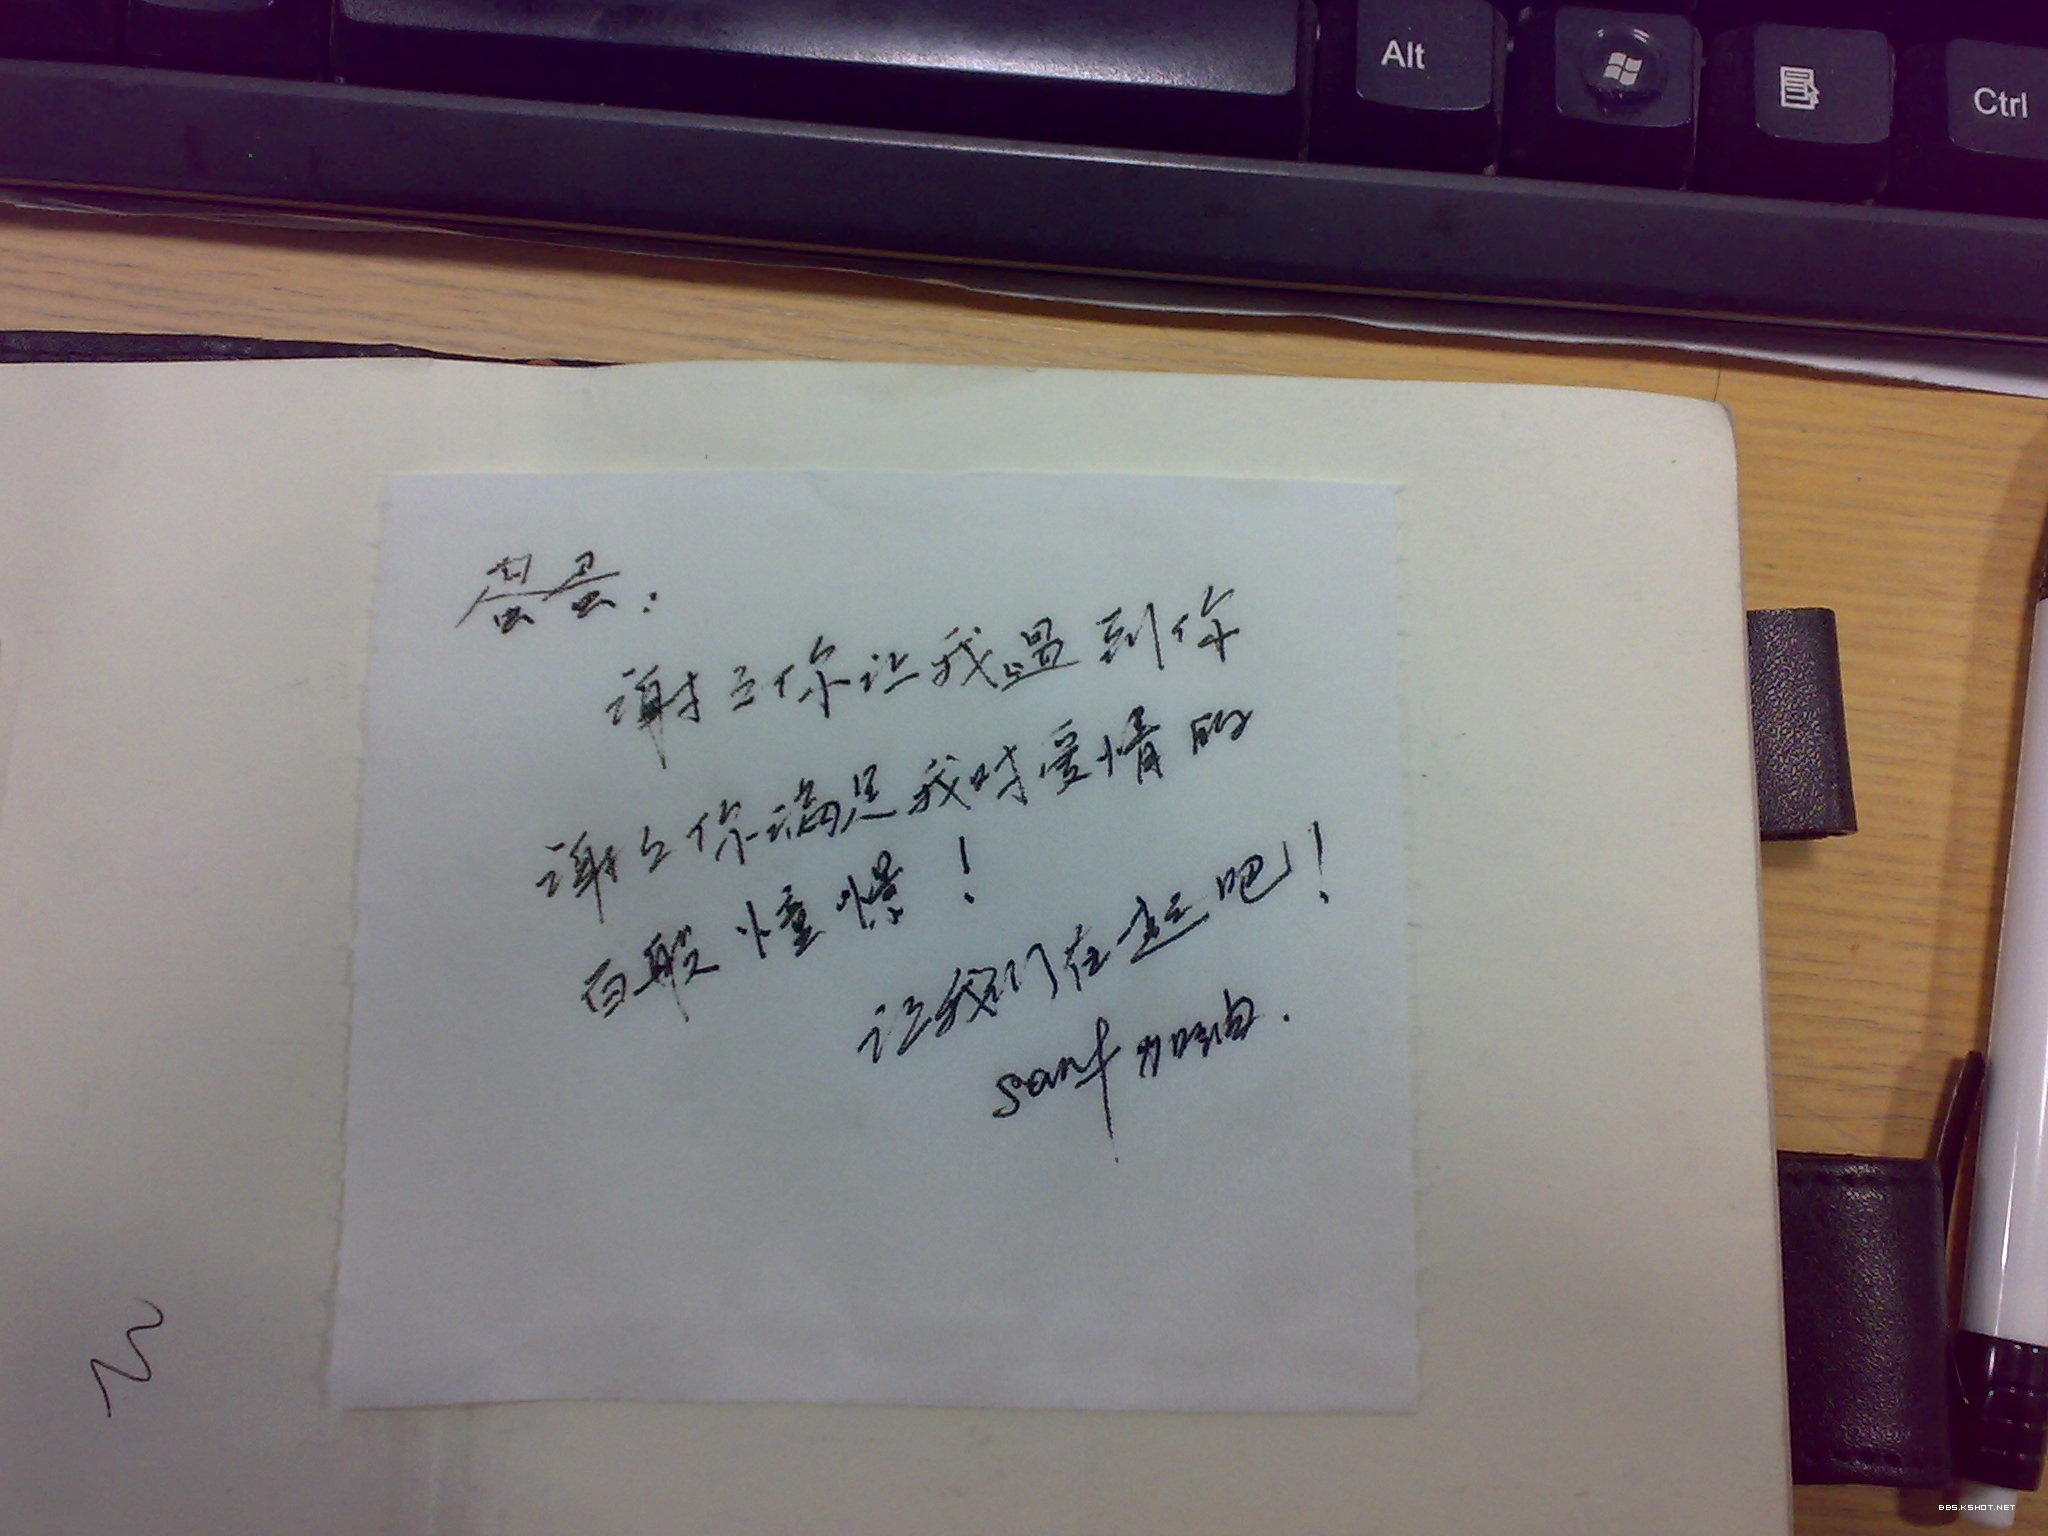 Alt
Ctrl
谢谢你让我遇到你
谢谢你满足我对爱情的
百般憧憬!
让我们在一起吧!
BBS.KSHOT.NET